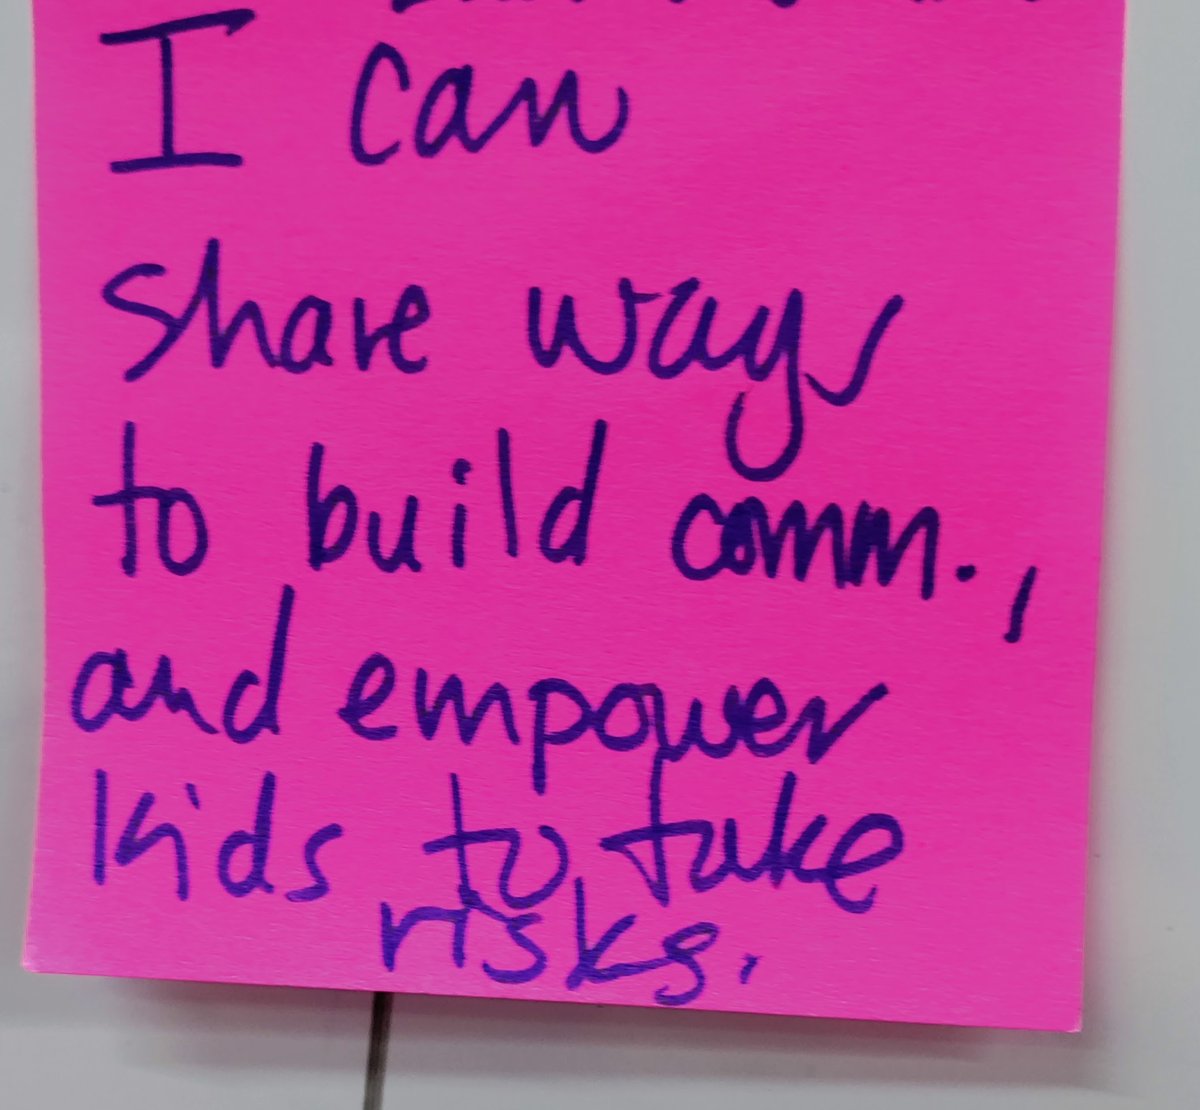 I can
share ways
to build comm.,
and empower
kids to take
risks.